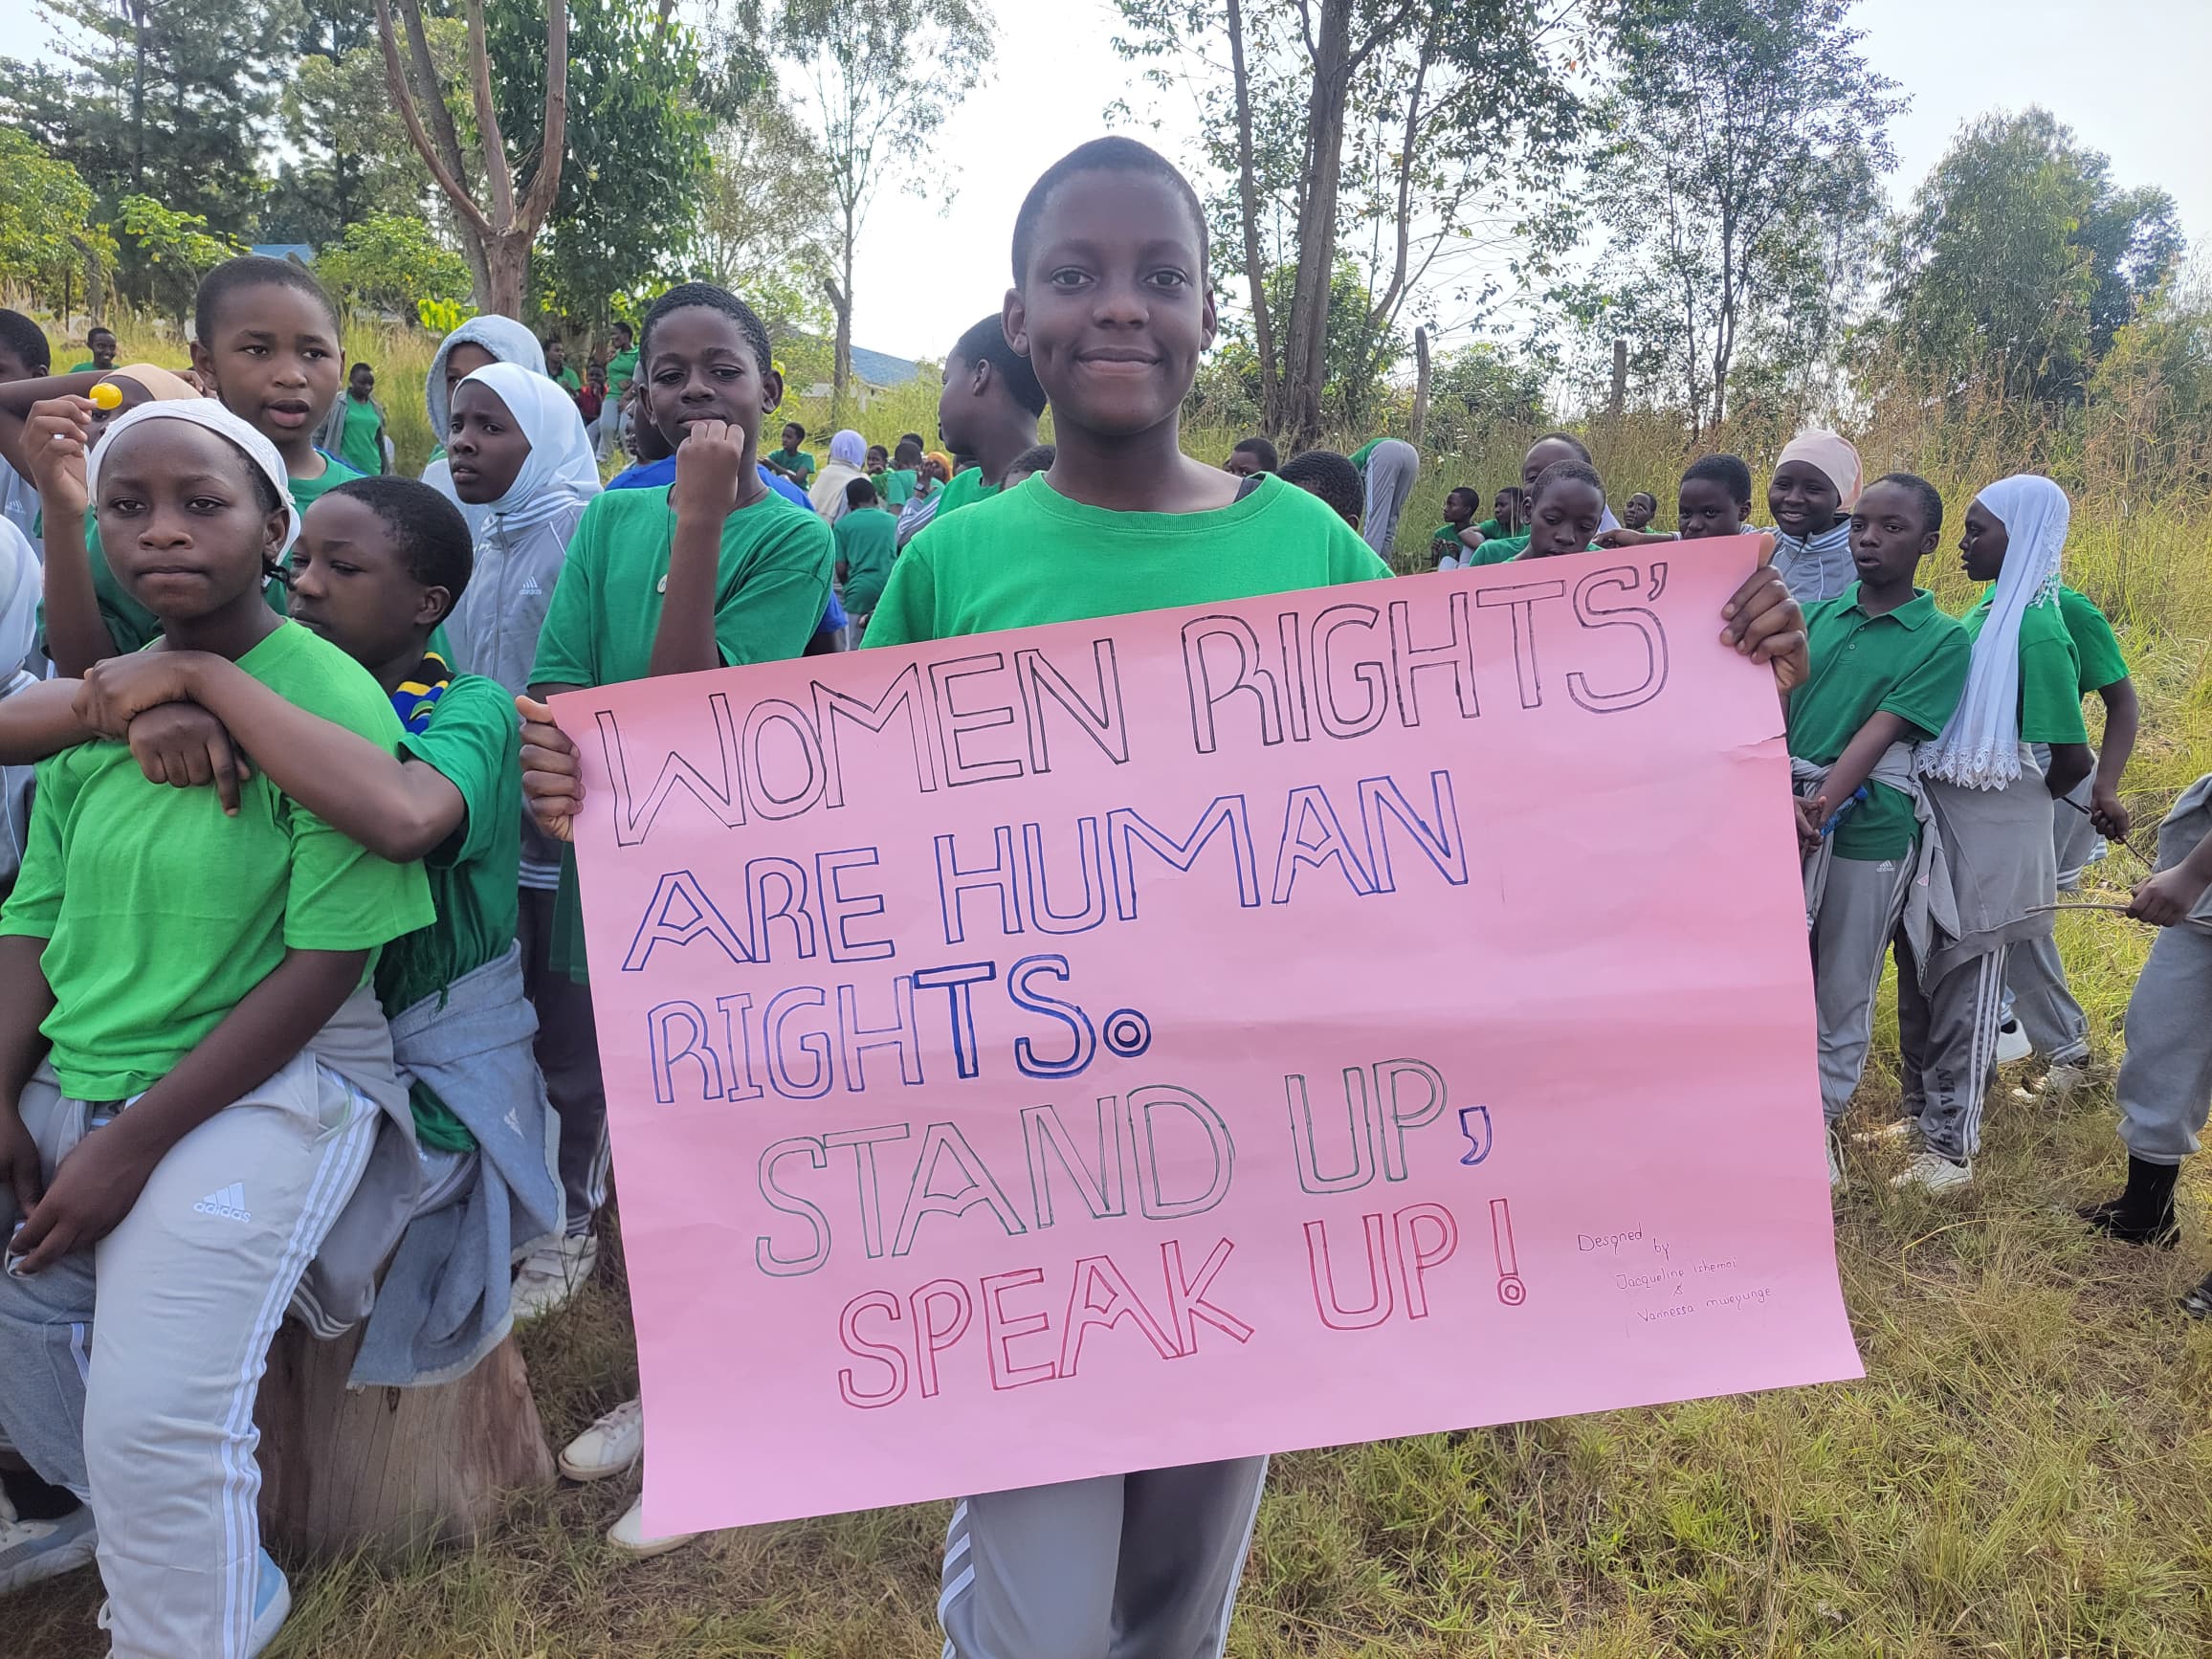 WOMEN RIGHTS'
ARE HUMAN
RIGHTS.
STAND UP,
SPEAK UP!
Desgned
by
Jacqueline Ishemoi
&
Vannessa mweyunge
adidas
adidas
HEAVEN